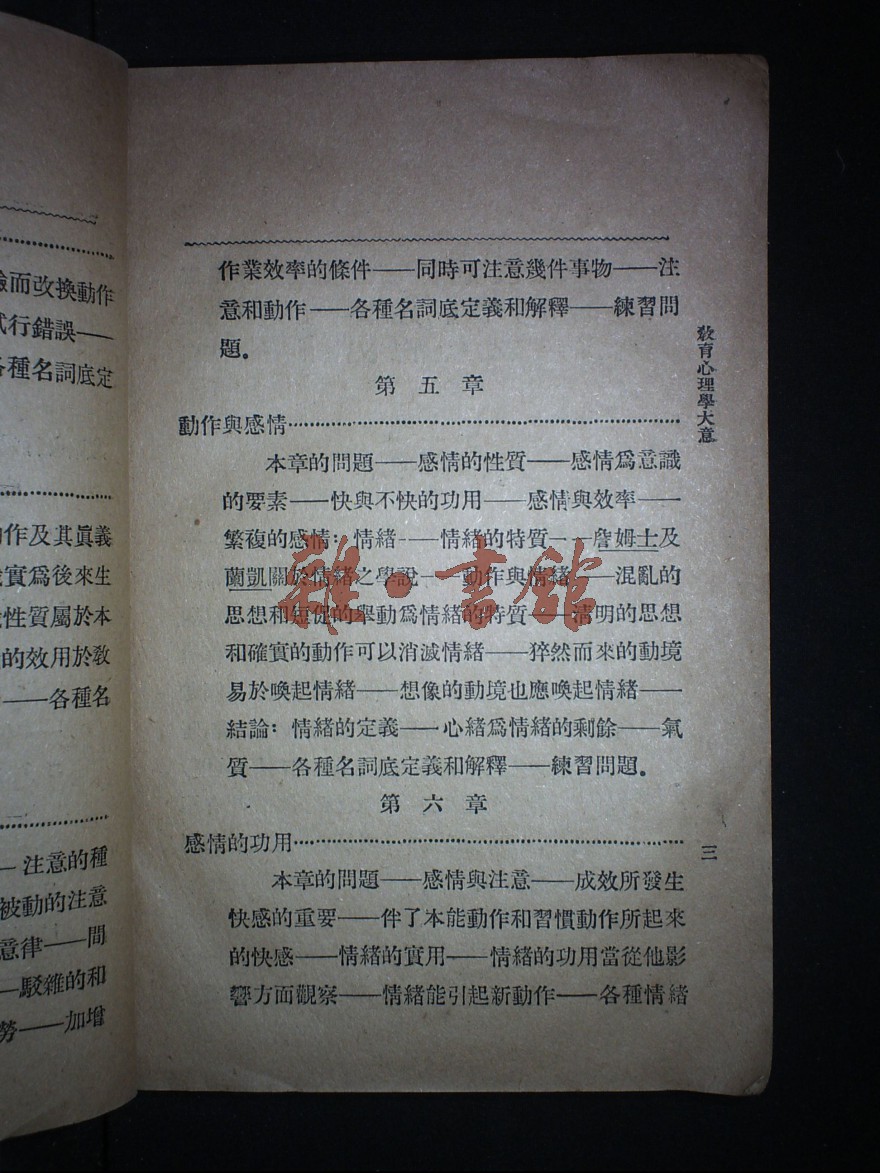 驗而改換動作
試行錯誤——
各種名詞底定
動作及其眞義
實爲後來生
性質屬於本
的效用於敎
——各種名
—注意的種
被動的注意
意律——間
—駁雜的和
勞——加增
作業效率的條件——同時可注意幾件事物——注
意和動作——各種名詞底定義和解釋——練習問
題。
第五章
動作與感情………………………………………
本章的問題——感情的性質——感情爲意識
的要素——快與不快的功用——感情與效率——
繁複的感情：情緒——情緒的特質——詹姆士及
蘭凱關於情緒之學說——動作與情緒——混亂的
思想和短促的舉動爲情緒的特質——清明的思想
和確實的動作可以消滅情緒——猝然而來的動境
易於喚起情緒——想像的動境也應喚起情緒——
結論：情緒的定義——心緒爲情緒的剩餘——氣
質——各種名詞底定義和解釋——練習問題。
第六章
感情的功用………………………………………
本章的問題——感情與注意——成效所發生
快感的重要——伴了本能動作和習慣動作所起來
的快感——情緒的實用——情緒的功用當從他影
響方面觀察——情緒能引起新動作——各種情緒
敎育心理學大意
三
雜·書館